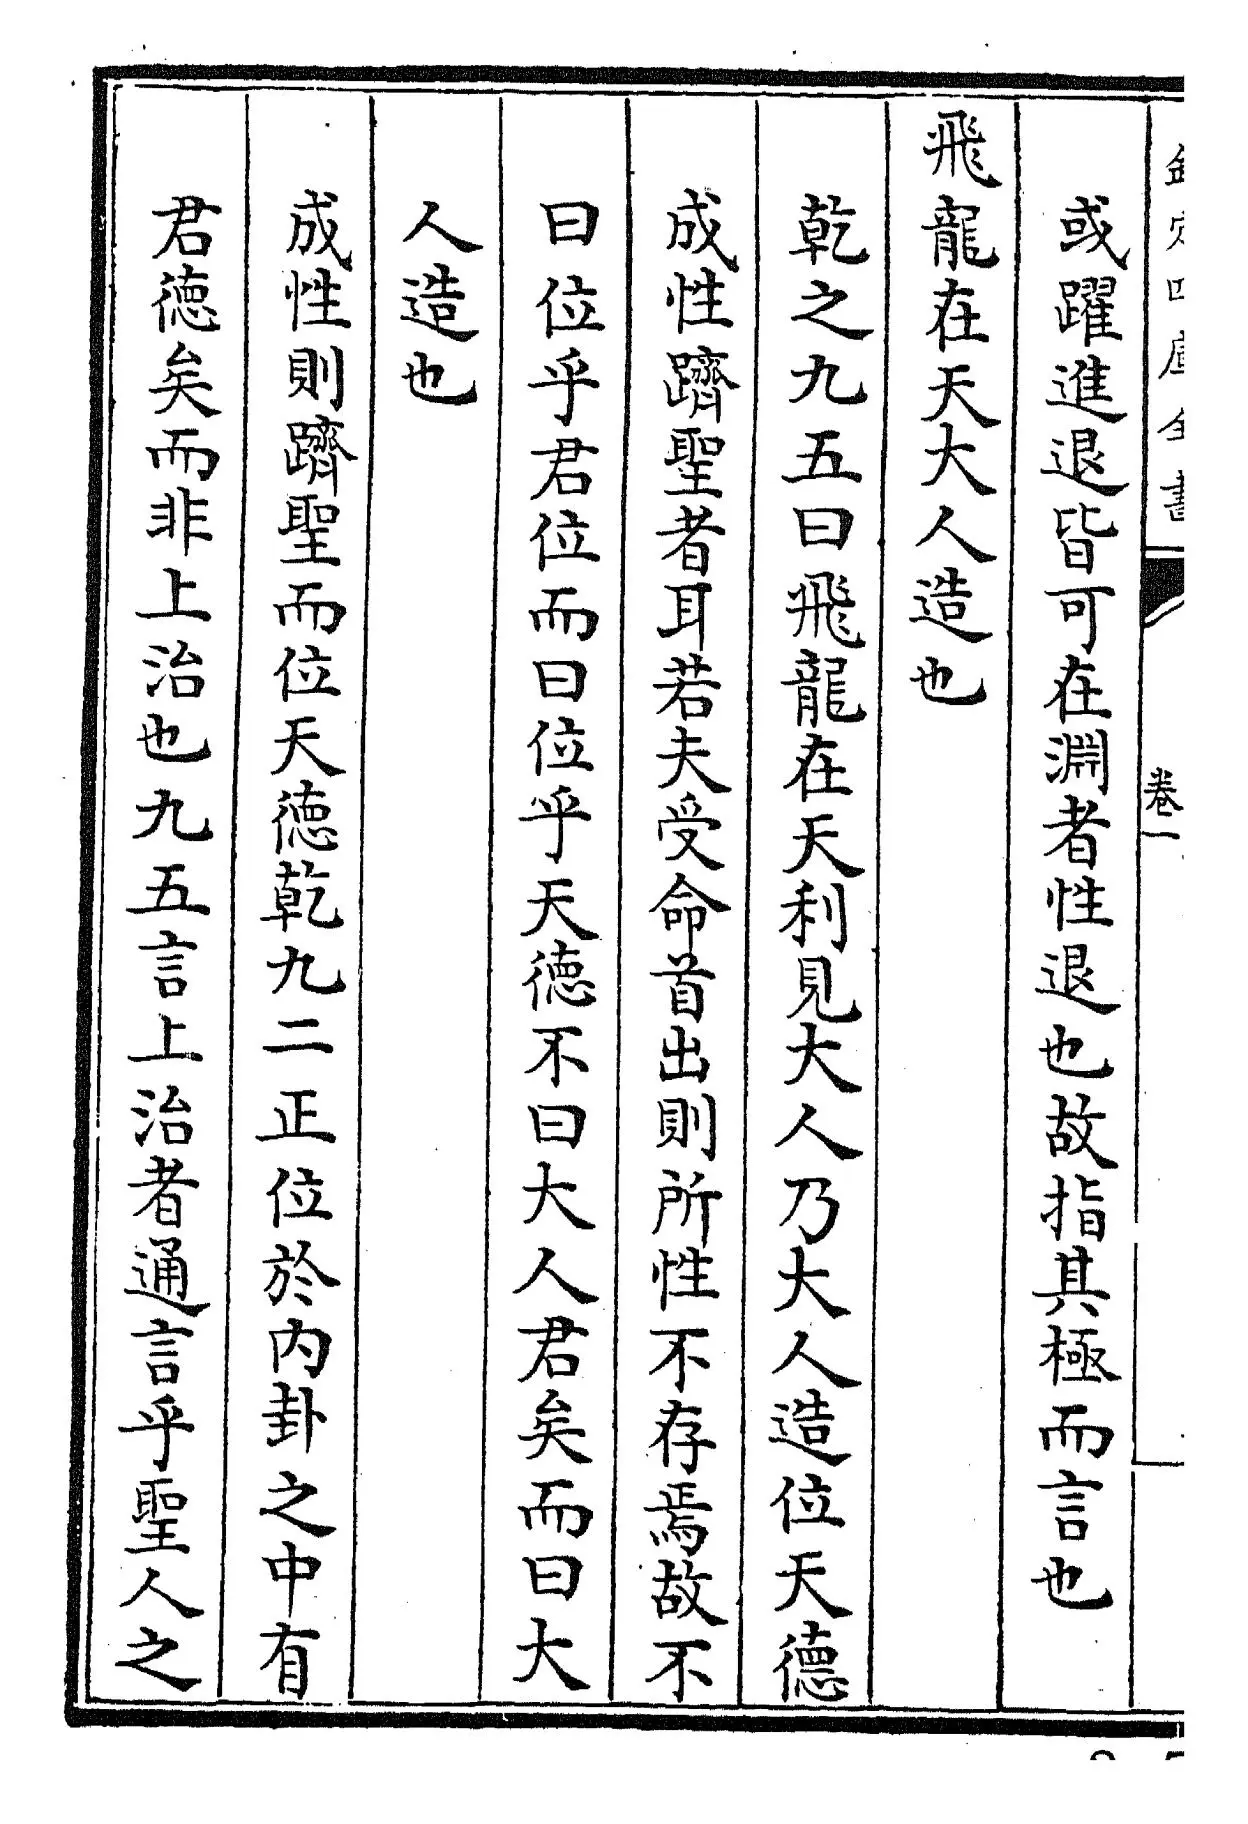 欽定四庫全書
卷一
或躍進退皆可在淵者性退也故指其極而言也
飛龍在天大人造也
乾之九五曰飛龍在天利見大人乃大人造位天德
成性躋聖者耳若夫受命首出則所性不存焉故不
曰位乎君位而曰位乎天德不曰大人君矣而曰大
人造也
成性則躋聖而位天德乾九二正位於内卦之中有
君德矣而非上治也九五言上治者通言乎聖人之